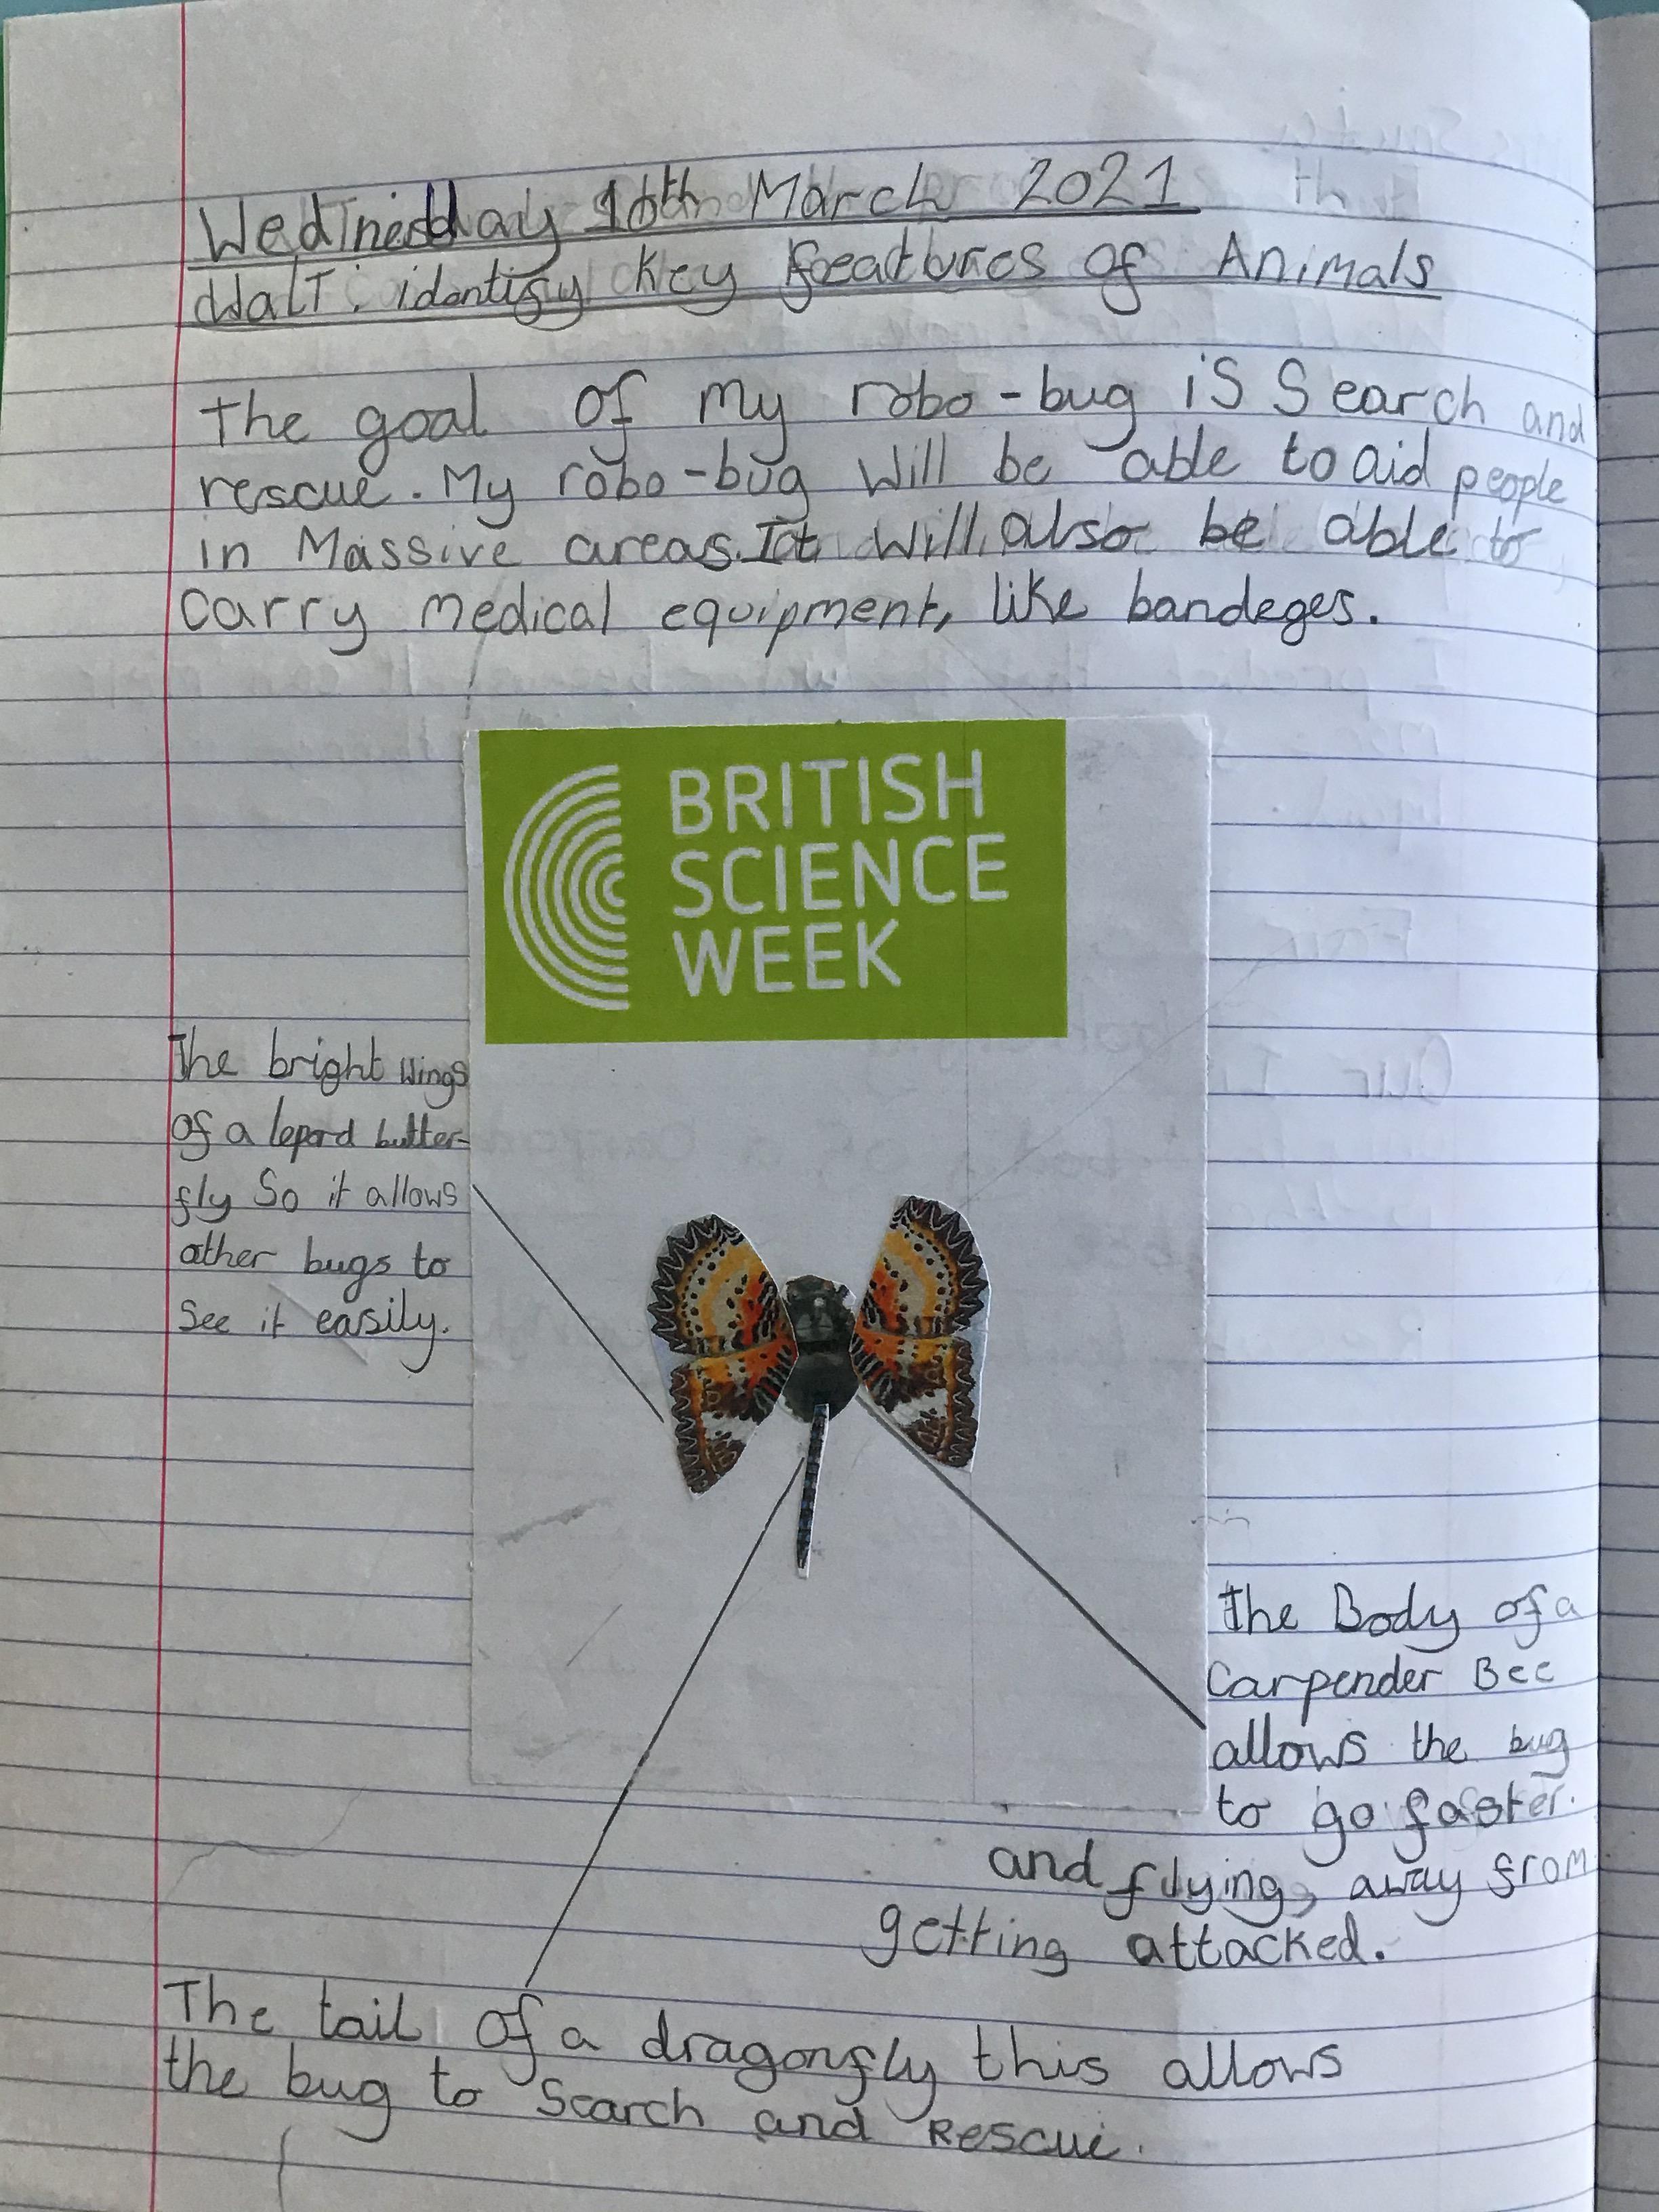 Wednesday 10th March 2021
WalT: identify Key features of Animals
The goal of my robo-bug is Search and
rescue. My robo-bug will be able to aid people
in Massive areas. It will also be able to
carry medical equipment, like bandeges.
BRITISH
SCIENCE
WEEK
The bright wings
of a lepord butter-
fly So it allows
other bugs to
see it easily.
The Body of a
Carpender Bee
allows the bug
to go faster.
and flying, away from
getting attacked.
The tail of a dragonfly this allows
the bug to Search and Rescue.